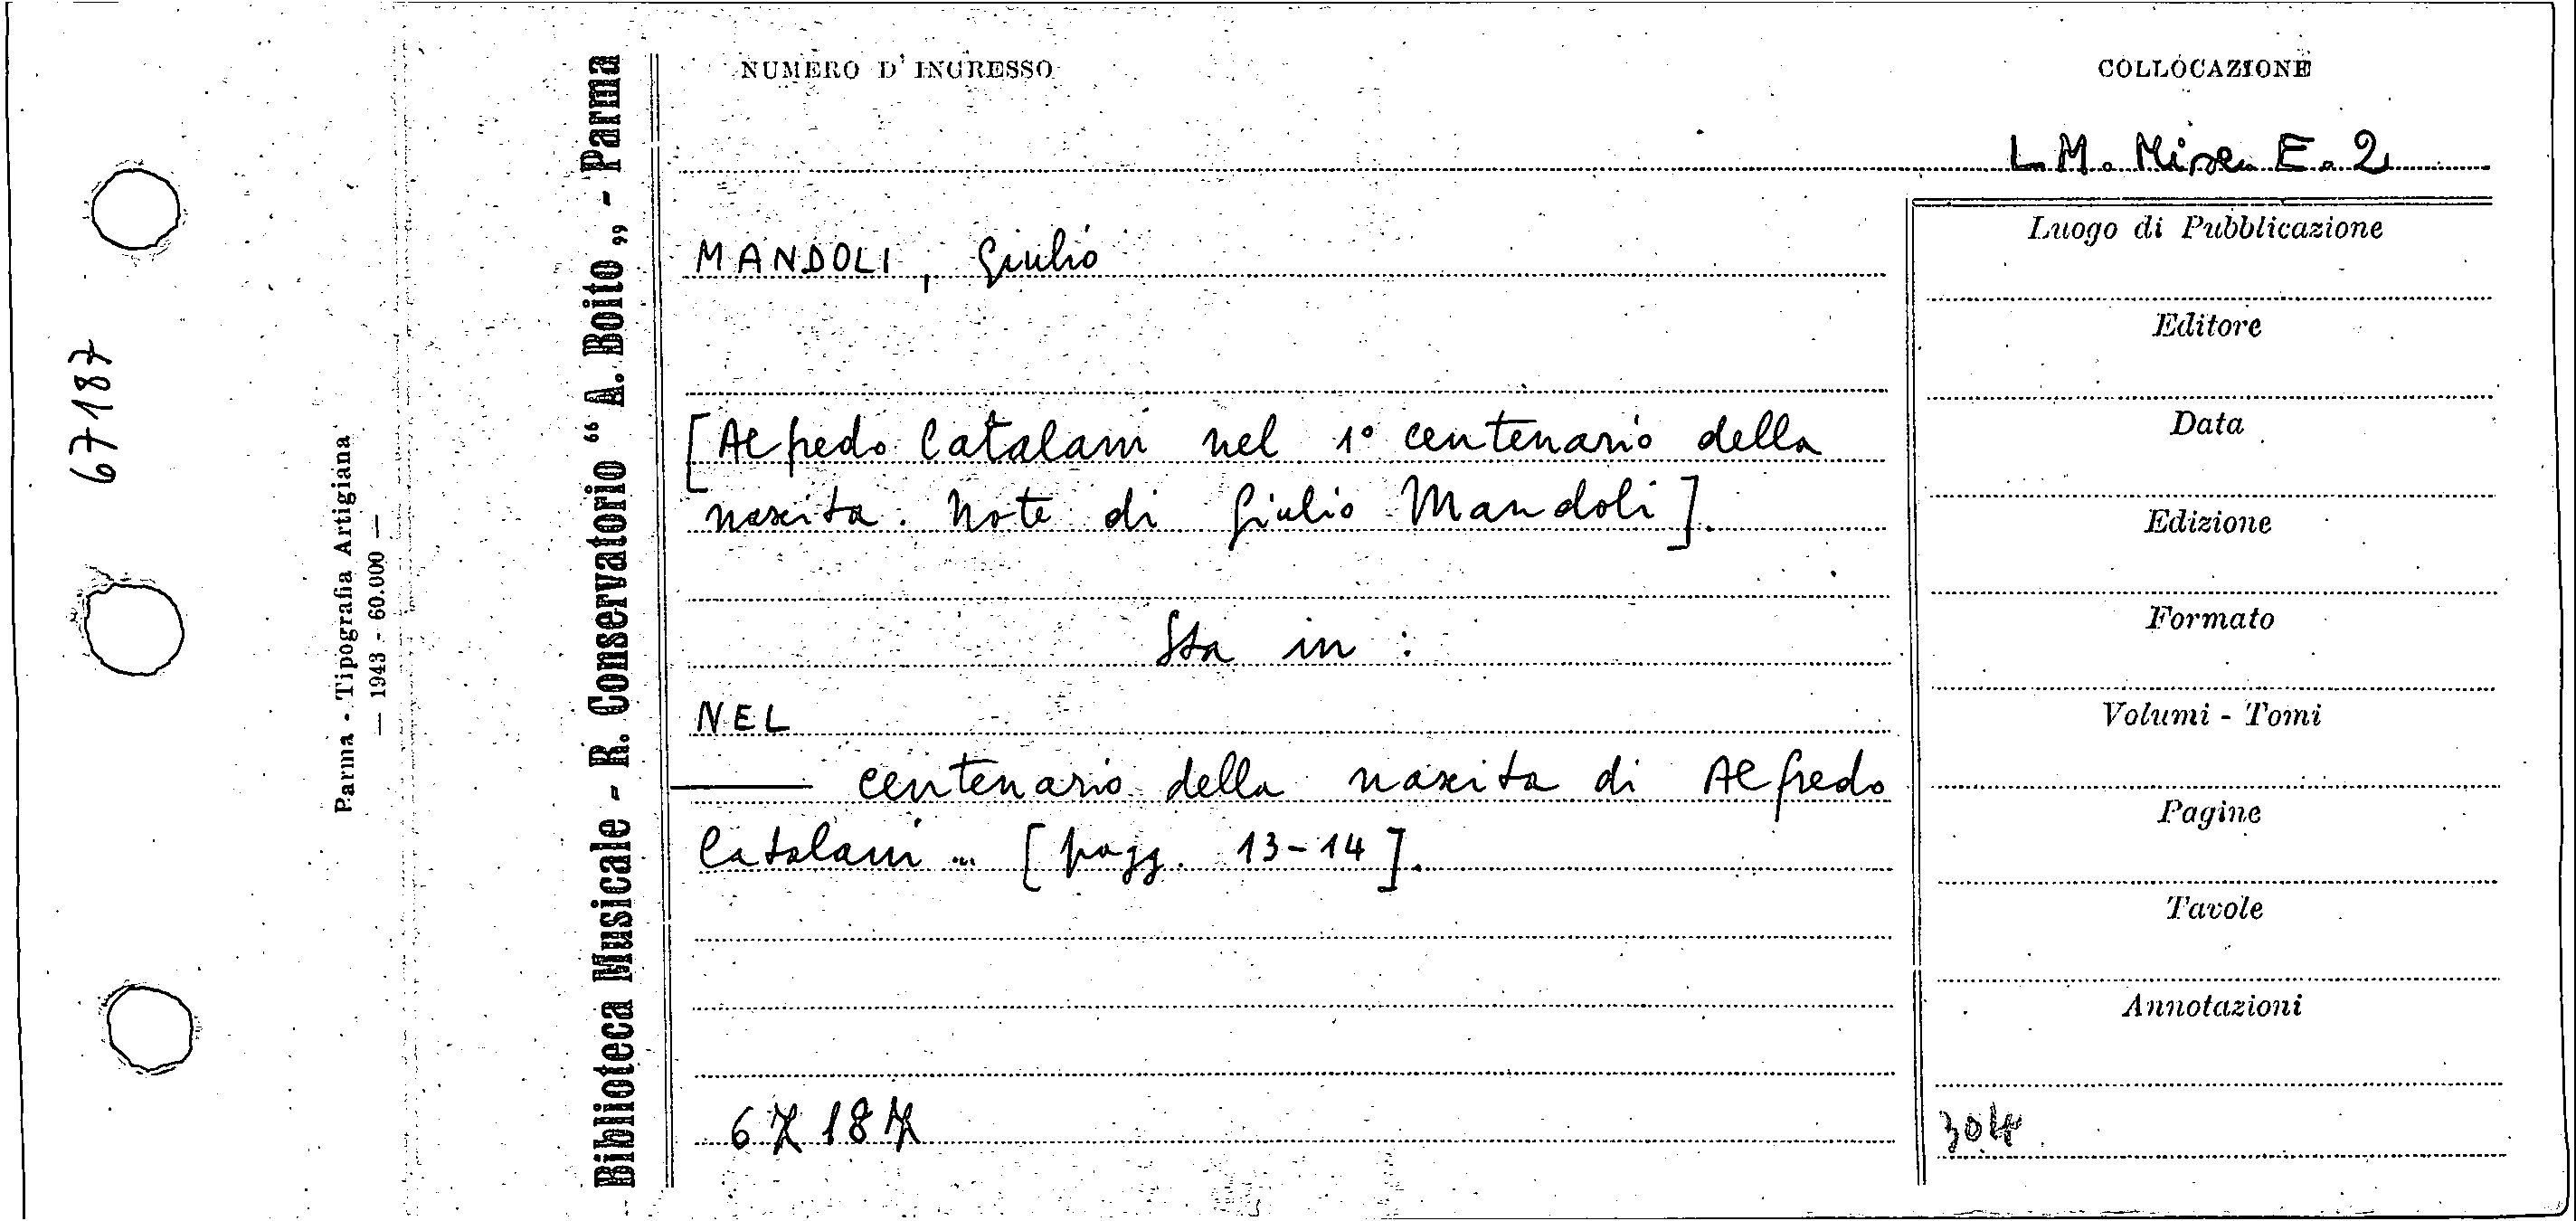 67187
Parma - Tipografia Artigiana
— 1943 - 60.000 —
Biblioteca Musicale - R. Conservatorio “ A. Boito „ - Parma
NUMERO D' INGRESSO
COLLOCAZIONE
L.M. Misc. E. 2
MANDOLI, Giulio
[Alfredo Catalani nel 1° centenario della
nascita. Note di Giulio Mandoli].
Sta in :
NEL
——— centenario della nascita di Alfredo
Catalani ... [pagg. 13-14].
67187
Luogo di Pubblicazione
Editore
Data
Edizione
Formato
Volumi - Tomi
Pagine
Tavole
Annotazioni
304